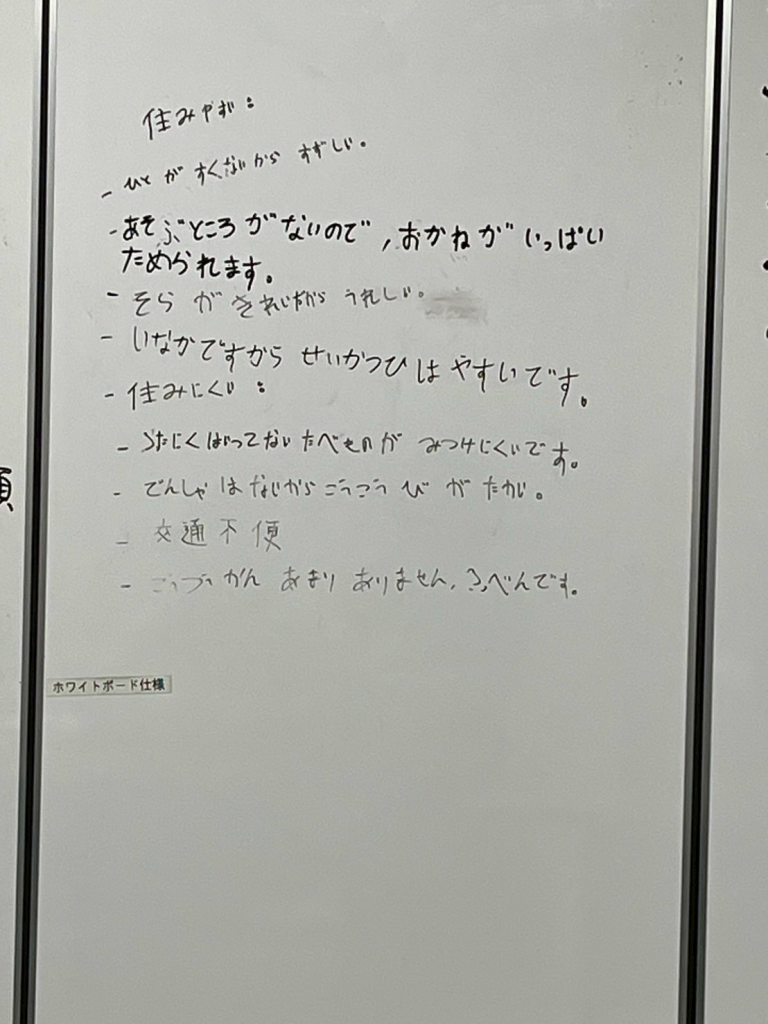 住みやすい:
- ひと が すくないから すずしい。
- あそぶところがないので,おかねが いっぱい
ためられます。
- そら が きれいだから うれしい。
- いなかですから せいかつひ は やすいです。
- 住みにくい:
- たべものが みつけにくいです。
- でんしゃ は ないから こうこう ひ が たかい。
- 交通不便
- こうつうかん あまり ありません、ふべんです。
ホワイトボード仕様